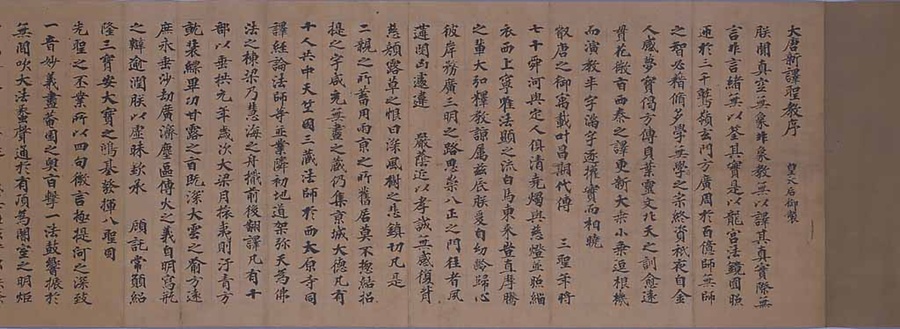 大唐新譯聖教序 皇太后御製
朕聞真空無象非象教無以譯其真實際無
言非言緒無以荃其實是以龍宮法鏡圓照
遍於三千鷲嶺玄門方廣周於百億師無師
之智必藉脩多學無學之宗終資祇夜自金
人感夢寶偈方傳貝葉靈文北天之訓愈遠
貫花微旨西秦之譯更新大乘小乘逗根機
而演教半字滿字逐權實而相曉
散唐之御寓載叶昌期代傳 三聖年將
七十舜河與定人俱清堯燭與慈燈並照緇
衣西上寧唯法顯之流白馬東來豈直摩騰
之軰大弘釋教諒屬茲辰朕爰自幼齡歸心
彼岸務廣三明之路思崇八正之門往者夙
遘閔凶遽違 嚴蔭近以孝誠無感復背
慈顔露草之恨日深風樹之悲鎮切凡是
二親之所蓄用兩京之所舊居莫不摠結招
提之宇咸充無盡之藏仍集京城大德凡有
十人共中天竺國三藏法師於西太原寺同
譯經論法師等並業隣初地道架弥天為佛
法之棟梁乃慧海之舟檝前後翻譯凡有十
部以垂拱元年歲次大梁月旅夷則汙青方
就裝縹畢功甘露之旨既深大雲之喻方遠
庶永垂沙劫廣濟塵區傳火之義自明寫瓶
之辯逾潤朕以虛昧欽承 顧託常願紹
隆三寶安大寶之鴻基發揮八聖固
先聖之丕業所以四句微言極提河之深致
一音妙義盡菴園之奧旨擊一法鼓響振於
無閒吹大法蠡聲通於有頂為闇室之明炬